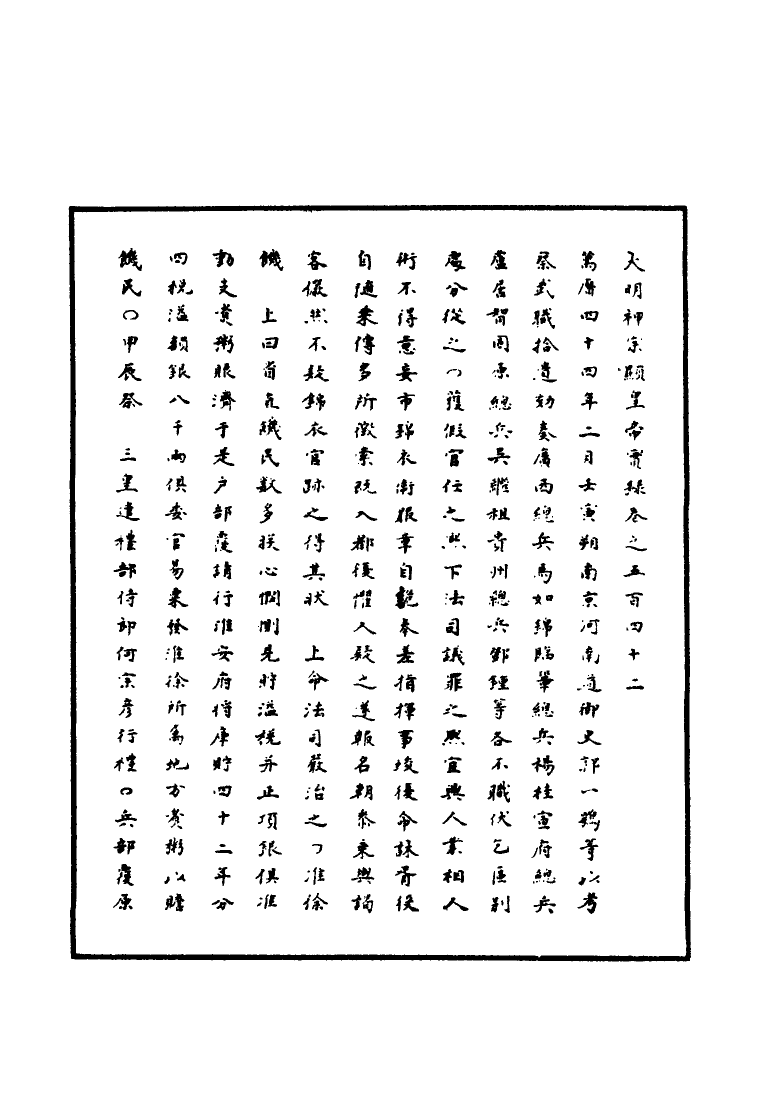 大明神宗顯皇帝實錄卷之五百四十二
萬曆四十四年二月壬寅朔南京河南道御史郭一鶚等以考
察武職拾遺劾奏廣西總兵馬如錦臨鞏總兵楊桂宣府總兵
盧居智固原總兵吳繼祖貴州總兵鄧鍾等各不職伏乞區別
處分從之○獲假官任之熙下法司議罪之熙宜興人業相人
術不得意妄市錦衣衛服章自詭奉差指揮事竣復命詠胥從
自隨乘傳多所徵索既入都復懼人疑之遂報名朝參東輿謁
客儼然不疑錦衣官跡之得其狀　上命法司嚴治之○淮徐
饑　上曰省直饑民數多朕心憫惻見貯溢稅并正項銀俱准
動支賣粥賑濟于是戶部覆請行淮安府借庫貯四十二年分
四稅溢額銀八千兩俱委官易粟發淮徐所屬地方煑粥以贍
饑民○甲辰祭　三皇遣禮部侍郎何宗彥行禮○兵部覆原